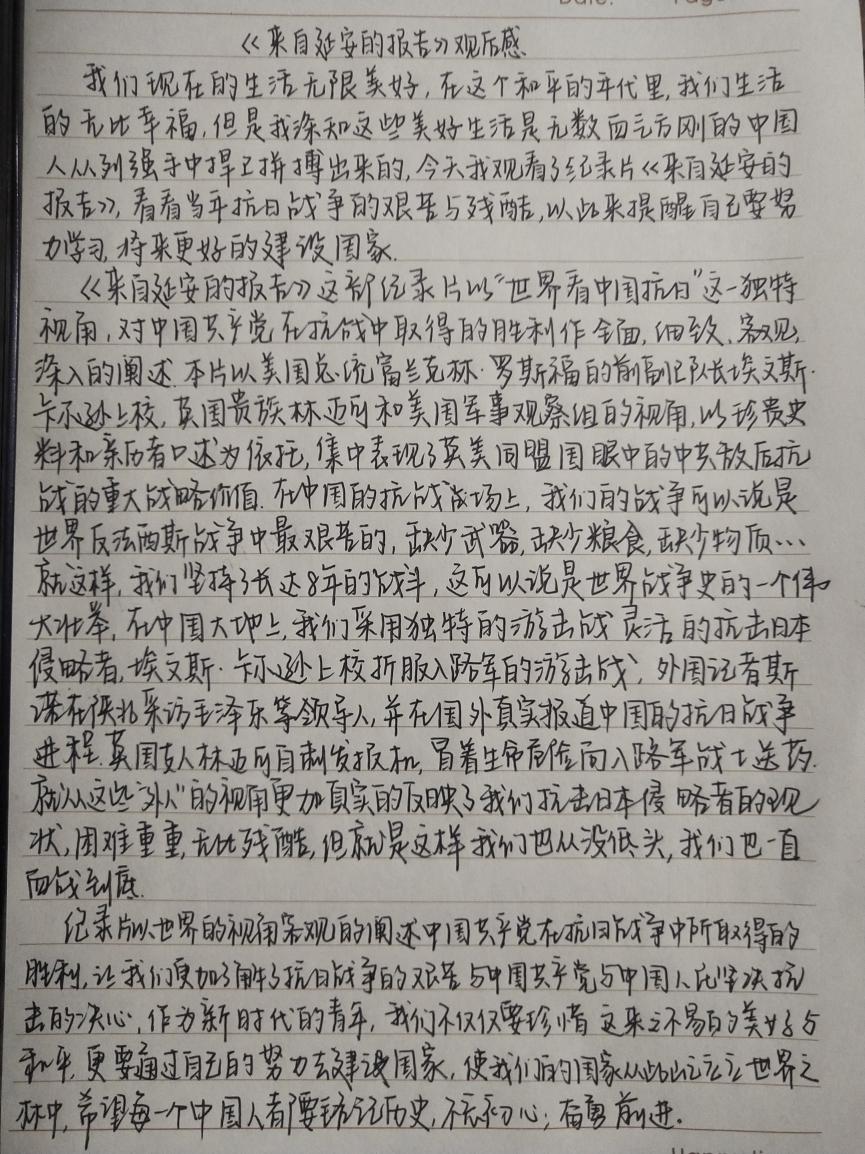 Date: Page
《来自延安的报告》观后感
我们现在的生活无限美好，在这个和平的年代里，我们生活
的无比幸福，但是我深知这些美好生活是无数血气方刚的中国
人从列强手中捍卫拼搏出来的，今天我观看了纪录片《来自延安的
报告》，看看当年抗日战争的艰苦与残酷，以此来提醒自己要努
力学习，将来更好的建设国家.
《来自延安的报告》这部纪录片以“世界看中国抗日”这一独特
视角，对中国共产党在抗战中取得的胜利作全面，细致、客观，
深入的阐述.本片以美国总统富兰克林·罗斯福的前副卫队长埃文斯·
卡尔逊上校，英国贵族林迈可和美国军事观察组的视角，以珍贵史
料和亲历者口述为依托，集中表现了英美同盟国眼中的中共敌后抗
战的重大战略价值.在中国的抗战战场上，我们的战争可以说是
世界反法西斯战争中最艰苦的，缺少武器，缺少粮食，缺少物质…
就这样，我们坚持了长达8年的战斗，这可以说是世界战争史的一个伟
大壮举，在中国大地上，我们采用独特的游击战灵活的抗击日本
侵略者，埃文斯·卡尔逊上校折服八路军的游击战，外国记者斯
诺在陕北采访毛泽东等领导人，并在国外真实报道中国的抗日战争
进程.英国友人林迈可自制发报机，冒着生命危险向八路军战士送药.
就从这些“外人”的视角更加真实的反映了我们抗击日本侵略者的现
状，困难重重，无比残酷，但就是这样我们也从没低头，我们也一直
血战到底.
纪录片以世界的视角客观的阐述中国共产党在抗日战争中所取得的
胜利，让我们更加了解了抗日战争的艰苦与中国共产党与中国人民坚决抗
击的决心，作为新时代的青年，我们不仅仅要珍惜这来之不易的美好与
和平，更要通过自己的努力去建设国家，使我们的国家从此屹立于世界之
林中，希望每一个中国人都要铭记历史，不忘初心；奋勇前进.